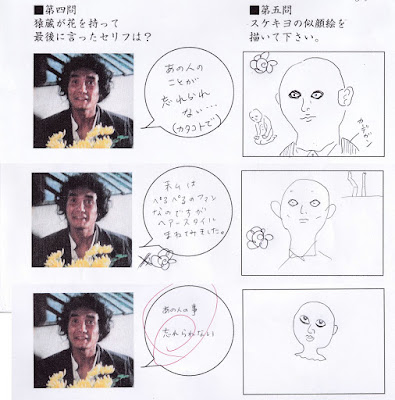 ■第四問
猿蔵が花を持って
最後に言ったセリフは？
■第五問
スケキヨの似顔絵を
描いて下さい。
あの人の
ことが
忘れられ
ない…
(カタコトで)
私は
ぺるぺるのファン
なのですが
ヘアースタイル
まねてみました。
あの人の事
忘れられない